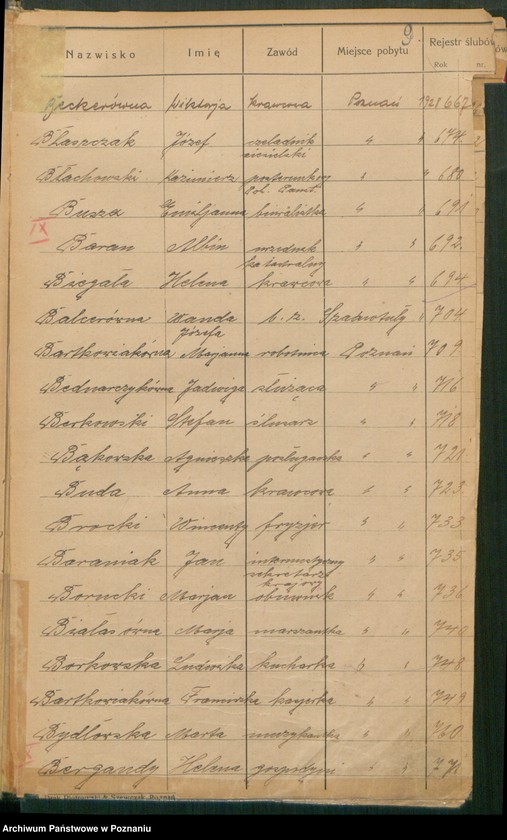 9.
Nazwisko Imię Zawód Miejsce pobytu Rejestr ślubów
Rok nr.
Beckerówna Wiktorja krawcowa Poznań 1928 667
Błaszczak Józef czeladnik ciesielski " " 674
Błachowski Kazimierz posterunkowy Pol. Państ. " " 680
Busza Emiljanna " " 691
IX
Baran Albin urzędnik katastralny " " 692
Biegała Helena krawcowa " " 694
Balcerówna Wanda Józefa b. z. " 704
Bartkowiakówna Marjanna robotnica Poznań 709
Bednarczykówna Jadwiga służąca " " 716
Berkowski Stefan ślusarz " " 718
Bąkowska Agnieszka posługaczka " " 721
Buda Anna krawcowa " " 723
Brocki Wincenty fryzjer " " 733
Baraniak Jan sekretarz krajowy " " 735
Borucki Marjan obuwnik " " 736
Białasówna Marja " " 740
Borkowska Ludwika kucharka " " 748
Bartkowiakówna Franciszka kasjerka " " 749
Bydłowska Marta " " 760
Bergandy Helena gospodyni " " 771
Archiwum Państwowe w Poznaniu